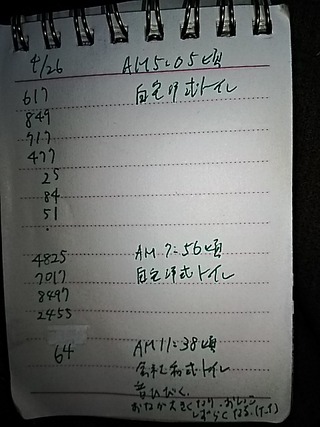 4/26 AM 5:05頃
617 自宅洋式トイレ
849
717
477
25
84
51
4825 AM 7:56頃
7017 自宅洋式トイレ
8497
2455
64 AM 11:38頃
会社和式トイレ
音ひびく。
おなか大きくなり、おしっこ